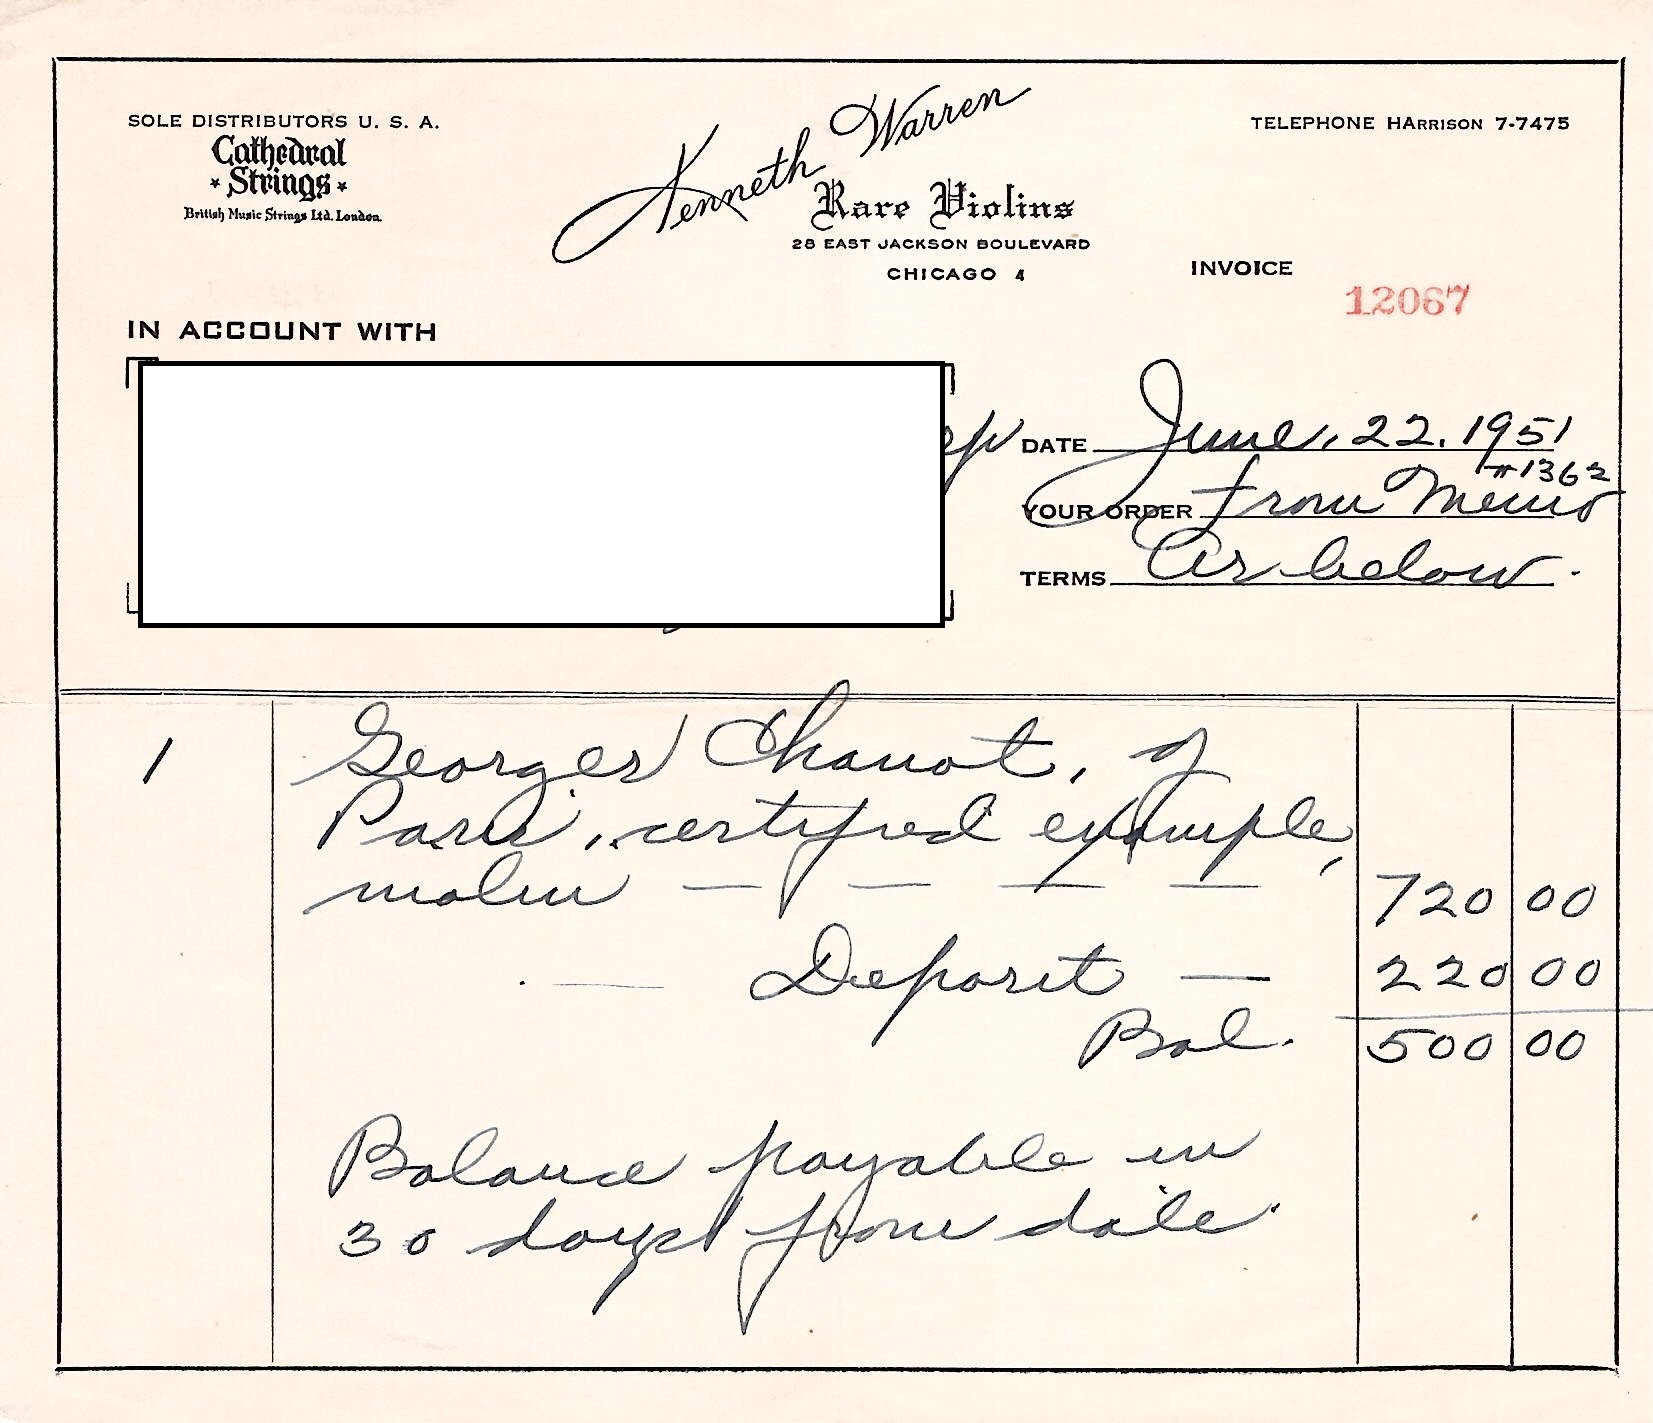 SOLE DISTRIBUTORS U. S. A.
Cathedral
* Strings *
British Music Strings Ltd. London.
Kenneth Warren
Rare Violins
28 EAST JACKSON BOULEVARD
CHICAGO 4
TELEPHONE HARRISON 7-7475
INVOICE
12067
IN ACCOUNT WITH
DATE June, 22. 1951
#1362
YOUR ORDER from Memo
TERMS As below.
1 Georges Chanot, of
Paris, certified example,
violin — — — — 720 00
— Deposit — 220 00
Bal. 500 00
Balance payable in
30 days from date.